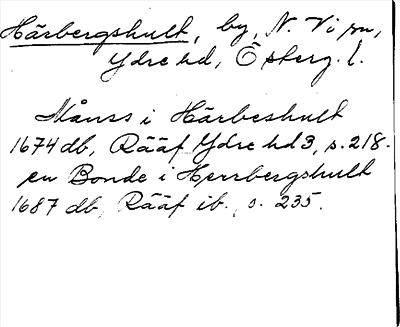 Härbergshult, by, N. Vi sn,
Ydre hd, Österg. l.
Månss i Härbeshult
1674 db, Rääf Ydre hd 3, s. 218.
en Bonde i Herrbergshult
1687 db, Rääf ib., s. 235.